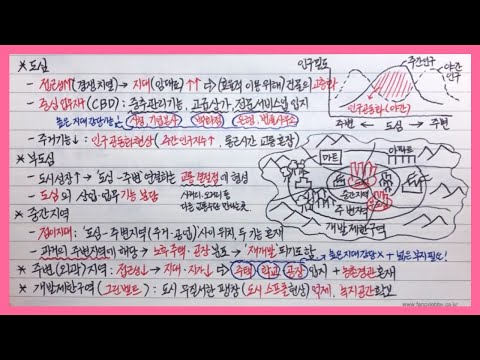 * 도심
- 접근성↑ (경쟁치열) → 지대(임대료)↑↑ ⇨ (효율적 이용위해) 건물의 고층화
- 중심업무지구(CBD) : 중추관리기능, 고급상가, 전문서비스업 입지
높은 지대 감당가능! 시청, 기업본사 백화점 은행, 법률사무소
- 주거기능↓ : 인구공동화현상 (주간인구지수↑, 출퇴근시간 교통혼잡)
* 부도심
- 도시성장↑ → 도심-주변 연계하는 교통결절점에 형성
- 도심의 상업·업무 기능 분담
* 중간지역
- 점이지대 : 도심-주변지역(주거·공업) 사이 위치, 두 기능 혼재
- 과거의 주변지역에 해당 → 노후주택·공장 분포 → '재개발' 되기도 함
높은 지대 감당 X + 넓은 부지 필요!
* 주변(외곽)지역 : 접근성↓ → 지대·지가↓ ⇨ 주택 학교 공장 입지 + 농촌경관 혼재
* 개발제한구역(그린벨트) : 도시 무질서한 팽창(도시 스프롤현상) 억제, 녹지공간확보
인구밀도
주간인구
야간인구
인구공동화(야간)
주변 ← 도심 → 주변
마트
아파트
중간지역
주변지역
개발제한구역